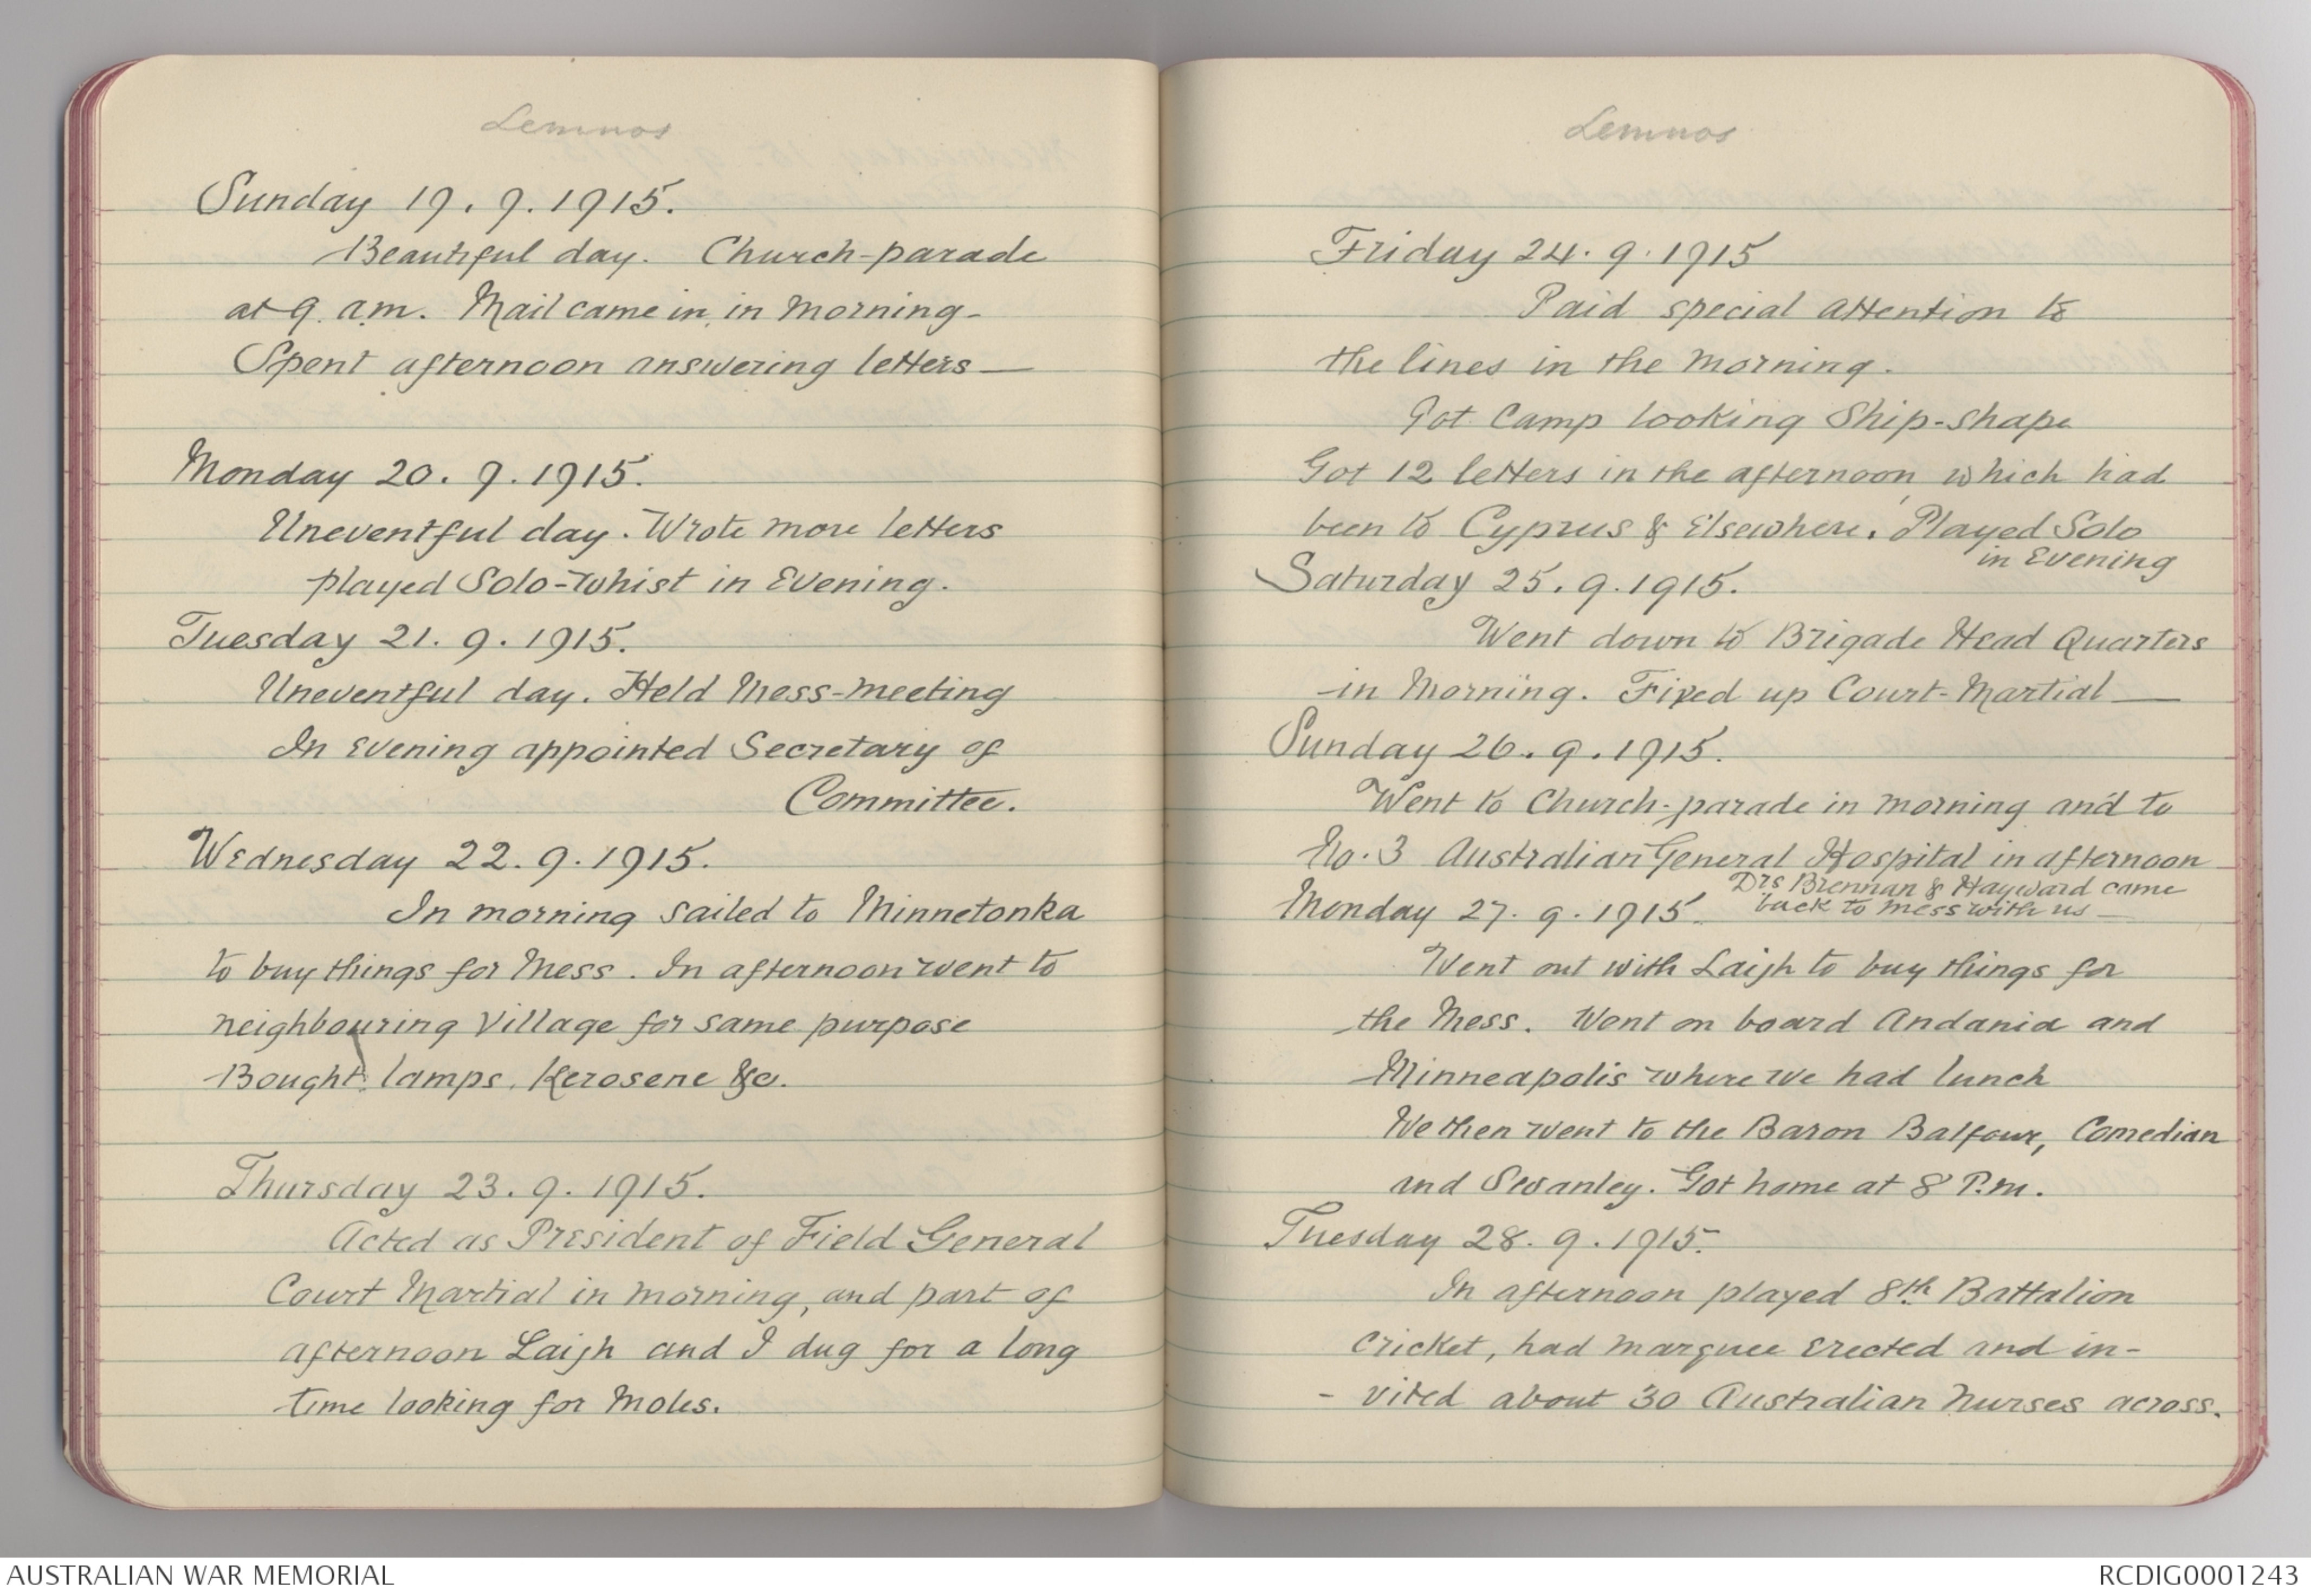 Lemnos
Sunday 19.9.1915.
Beautiful day. Church-parade
at 9. a.m. Mail came in, in morning-
Spent afternoon answering letters—
Monday 20.9.1915.
Uneventful day. Wrote more letters
played Solo-whist in Evening.
Tuesday 21.9.1915.
Uneventful day. Held Mess-meeting
In Evening appointed Secretary of
Committee.
Wednesday 22.9.1915.
In morning sailed to Minnetonka
to buy things for Mess. In afternoon went to
neighbouring Village for same purpose
Bought lamps, Kerosene &c.
Thursday 23.9.1915.
Acted as President of Field General
Court Martial in morning, and part of
afternoon Laigh and I dug for a long
time looking for Moles.
Lemnos
Friday 24.9.1915
Paid special attention to
the lines in the morning.
Got Camp looking Ship-shape
Got 12 letters in the afternoon, which had
been to Cyprus & Elsewhere. Played Solo
in Evening
Saturday 25.9.1915.
Went down to Brigade Head Quarters
in Morning. Fixed up Court-Martial—
Sunday 26.9.1915.
Went to Church-parade in morning and to
No. 3 Australian General Hospital in afternoon
Drs Brennan & Hayward came
back to mess with us—
Monday 27.9.1915.
Went out with Laigh to buy things for
the Mess. Went on board Andania and
Minneapolis where we had lunch
We then went to the Baron Balfour, Comedian
and Swanley. Got home at 8 P.m.
Tuesday 28.9.1915.
In afternoon played 8th Battalion
cricket, had marquee erected and in-
- vited about 30 Australian Nurses across.
AUSTRALIAN WAR MEMORIAL
RCDIG0001243